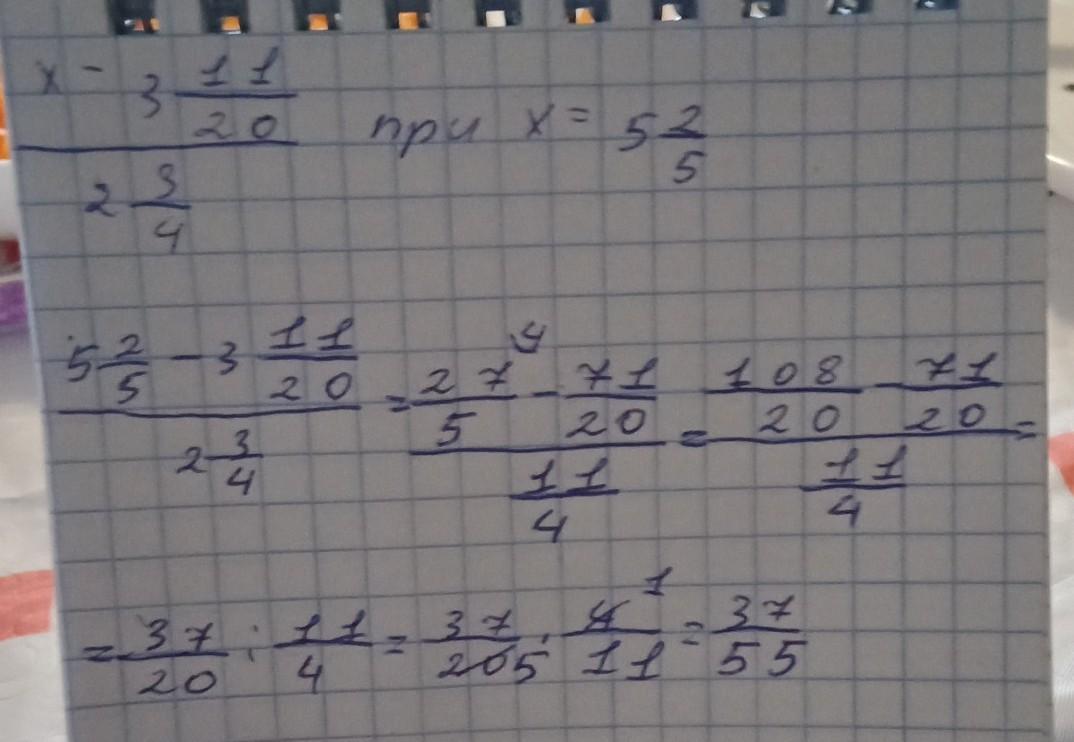 (x - 3 11/20) / (2 3/4) при x = 5 2/5
(5 2/5 - 3 11/20) / (2 3/4) = (27/5 ^4 - 71/20) / (11/4) = (108/20 - 71/20) / (11/4) =
= 37/20 : 11/4 = 37/20 5 · 4/11 1 = 37/55